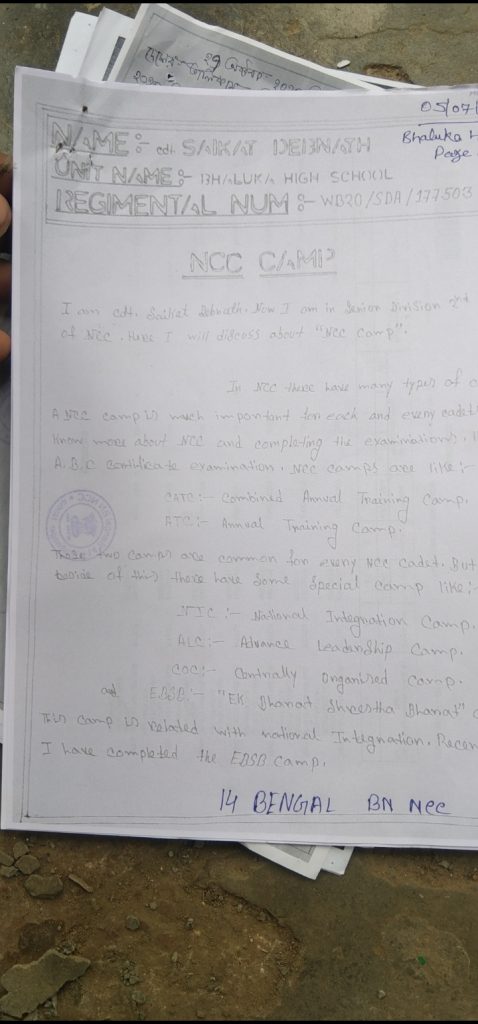 ২৭ অক্টোবর
05/07/
Bhaluka H
Page
NAME:- cdt. SAIKAT DEBNATH
UNIT NAME:- BHALUKA HIGH SCHOOL
REGIMENTAL NUM:- WB20/SDA/177503
NCC CAMP
I am cdt. Saikat Debnath. Now I am in Senior Division 2nd
of NCC. Here I will discuss about "NCC Camp".
In NCC there have many types of c
A NCC camp is much important for each and every cadet
Know more about NCC and completing the examinations,
A.B.C Certificate examination. NCC camps are like:-
CATC:- Combined Annual Training Camp.
ATC:- Annual Training Camp.
These two camps are common for every NCC cadet. But
beside of this there have some Special camp like:-
NIC:- National Integration Camp.
ALC:- Advance Leadership Camp.
COC:- Centrally Organised Camp.
and EBSB:- "EK Bharat Shrestha Bharat" C
This camp is related with national Integration. Recen
I have completed the EBSB camp.
14 BENGAL BN NCC